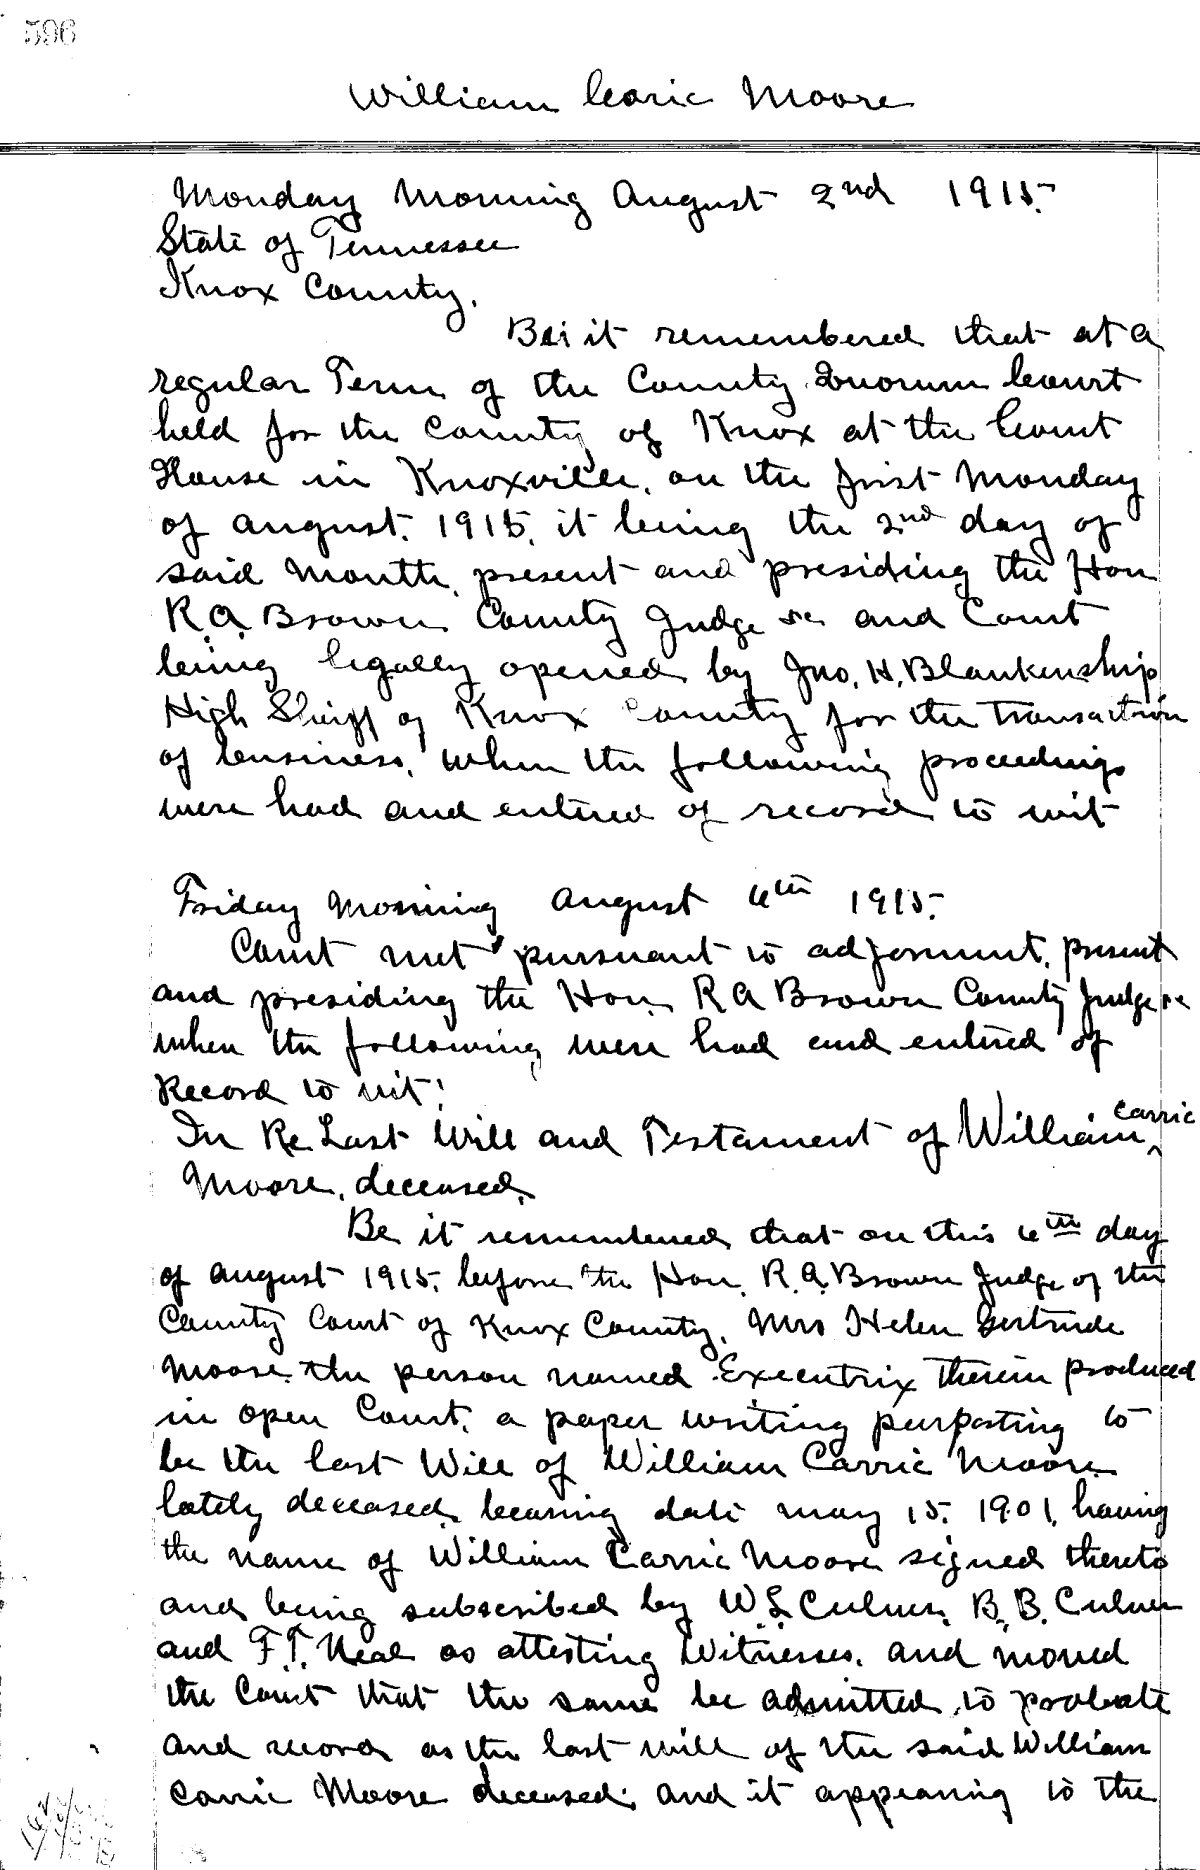 596
William Carric Moore
Monday Morning August 2nd 1915.
State of Tennessee
Knox County.
Be it remembered that at a
regular Term of the County Quorum Court
held for the County of Knox at the Court
House in Knoxville, on the first Monday
of August, 1915, it being the 2nd day of
said Month, present and presiding the Hon
R.A. Brown County Judge &c and Court
being legally opened by Jno. H. Blankenship
High Sheriff of Knox County for the transaction
of business, when the following proceedings
were had and entered of record to wit
Friday Morning August 6th 1915.
Court met pursuant to adjornment, present
and presiding the Hon. R A Brown County Judge &c
when the following were had and entered of
Record to wit:
In Re Last Will and Testament of William Carric
Moore, deceased.
Be it remembered that on this 6th day
of August 1915, before the Hon. R.A. Brown Judge of the
County Court of Knox County, Mrs Helen Gertrude
Moore, the person named Executrix therein produced
in open Court, a paper writing purporting to
be the last Will of William Carric Moore
lately deceased, bearing date May 15, 1901, having
the name of William Carric Moore signed thereto
and being subscribed by W.L. Culver, B.B. Culver
and F.T. Neal as attesting Witnesses, and moved
the Court that the same be admitted to probate
and record as the last will of the said William
Carric Moore deceased; and it appearing to the